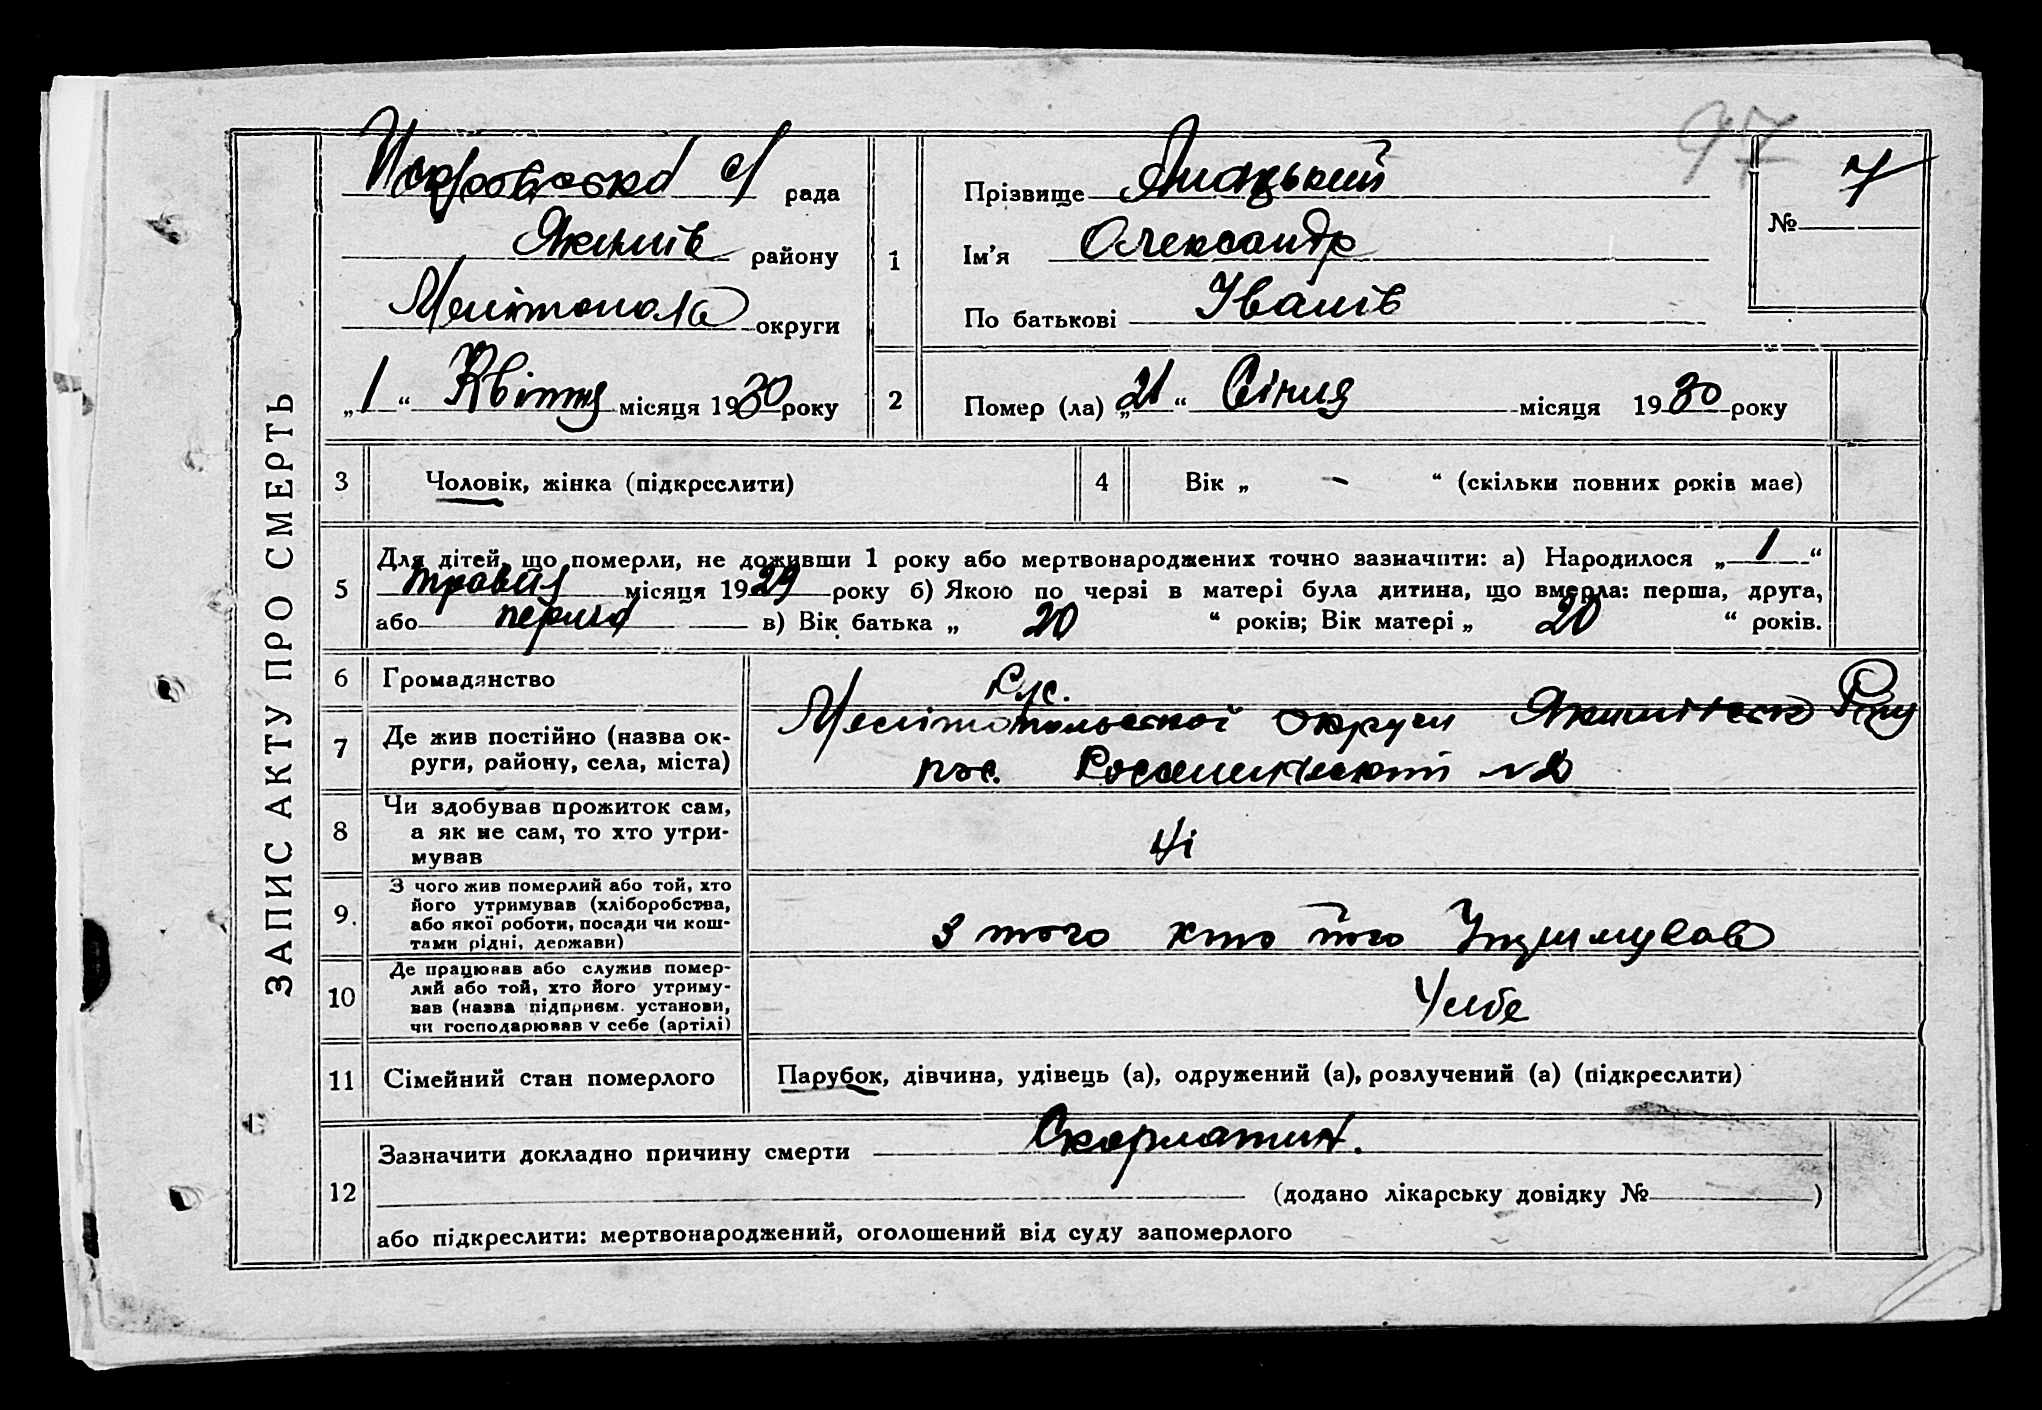 97
ЗАПИС АКТУ ПРО СМЕРТЬ
рада
Якимів району
Мелітополь округи
„1“ Квітня місяця 1930 року
1
Прізвище
Ім'я Олександр
По батькові Іванів
№ 7
2 Помер (ла) „21“ Січня місяця 1930 року
3 Чоловік, жінка (підкреслити)
4 Вік „ – “ (скільки повних років має)
5 Для дітей, що померли, не доживши 1 року або мертвонароджених точно зазначити: а) Народилося „1“
травня місяця 1929 року б) Якою по черзі в матері була дитина, що вмерла: перша, друга,
або перша в) Вік батька „ 20 “ років; Вік матері „ 20 “ років.
6 Громадянство
7 Де жив постійно (назва ок-
руги, району, села, міста)
Мелітопольської округи
пос. №2
8 Чи здобував прожиток сам,
а як не сам, то хто утри-
мував
Ні
9. З чого жив померлий або той, хто
його утримував (хліборобства,
або якої роботи, посади чи кош-
тами рідні, держави)
з того кто його Утримував
10 Де працював або служив помер-
лий або той, хто його утриму-
вав (назва підприєм. установи,
чи господарював у себе (артілі)
Усебе
11 Сімейний стан померлого
Парубок, дівчина, удівець (а), одружений (а), розлучений (а) (підкреслити)
12 Зазначити докладно причину смерти Скорлатин.
(додано лікарську довідку № )
або підкреслити: мертвонароджений, оголошений від суду запомерлого